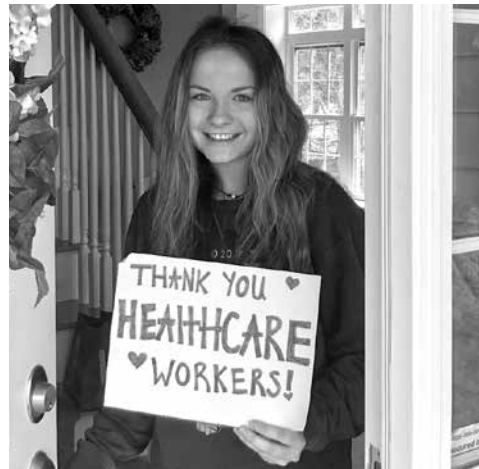 THANK YOU
HEALTHCARE
WORKERS!